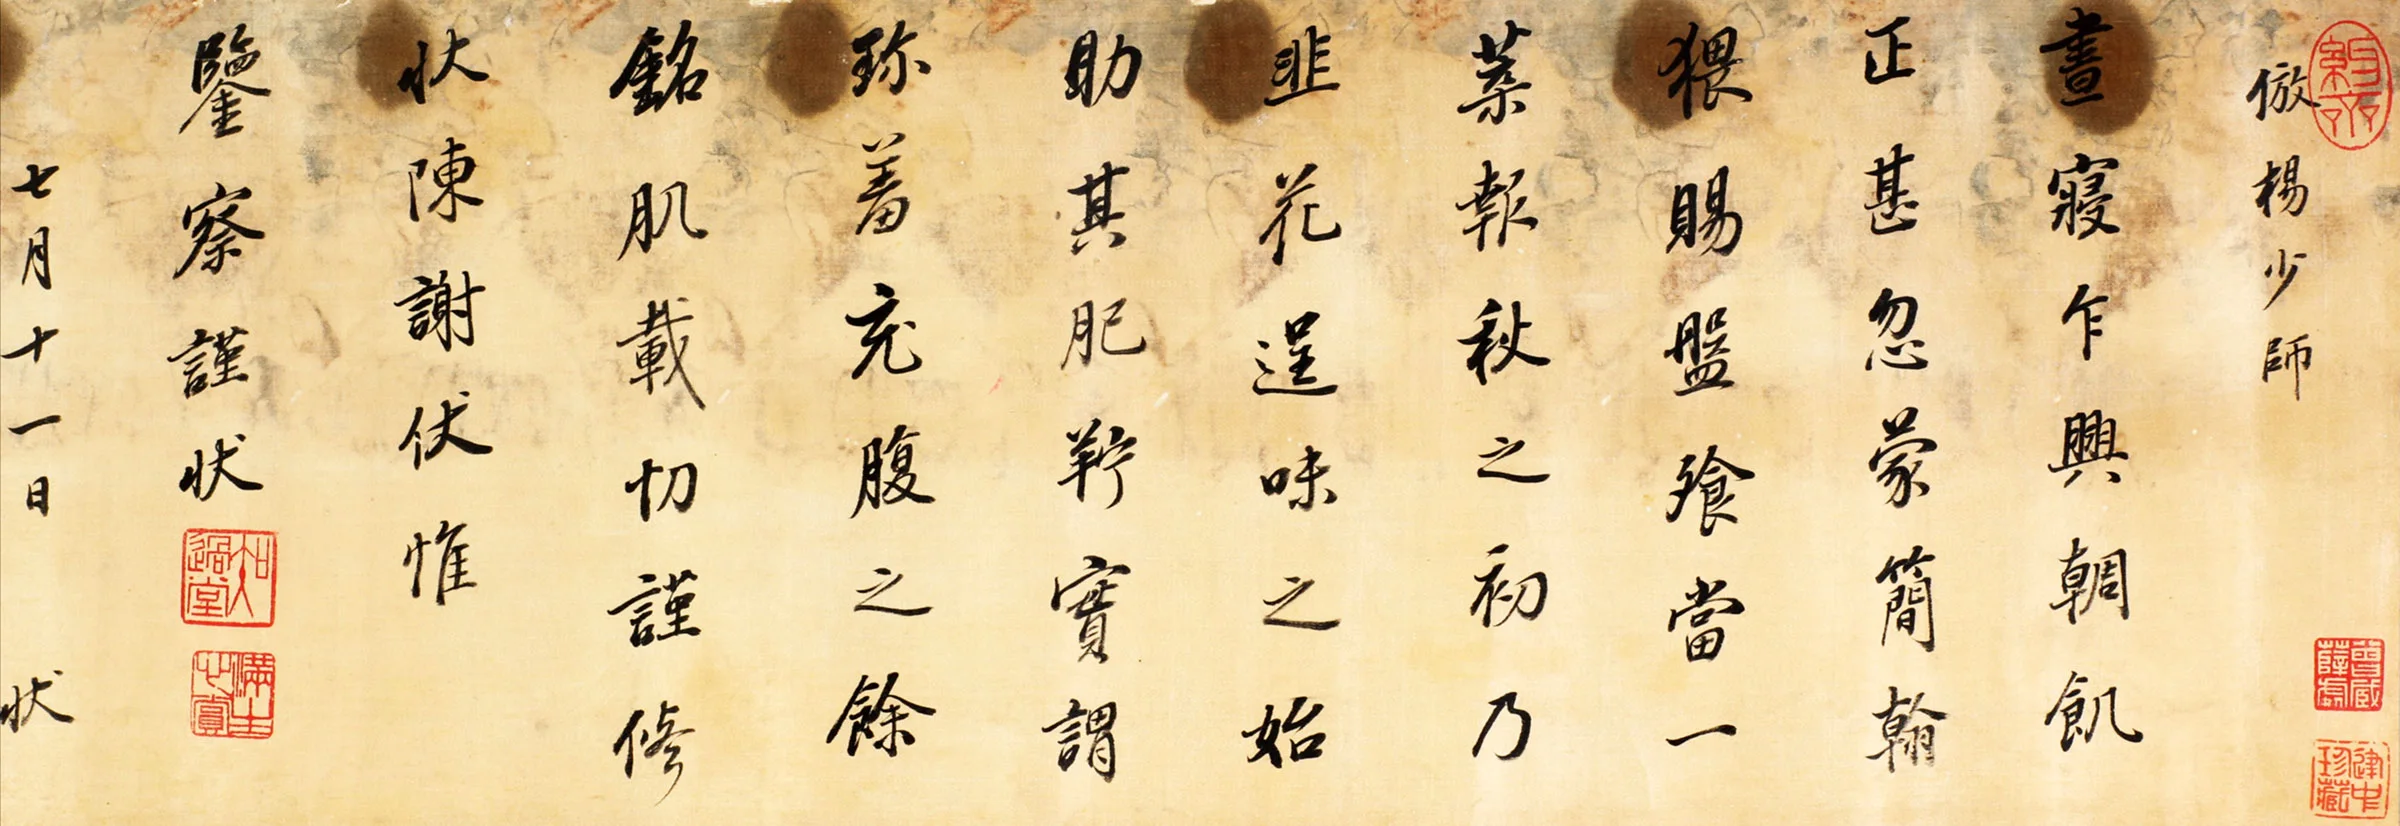 倣楊少師
晝寢乍興朝飢
正甚忽蒙簡翰
猥賜盤飱當一
葉報秋之初乃
韭花逞味之始
助其肥羜實謂
珍羞充腹之餘
銘肌載切謹修
状陳謝伏惟
鑒察謹状
七月十一日 状
知過堂
建中珍藏